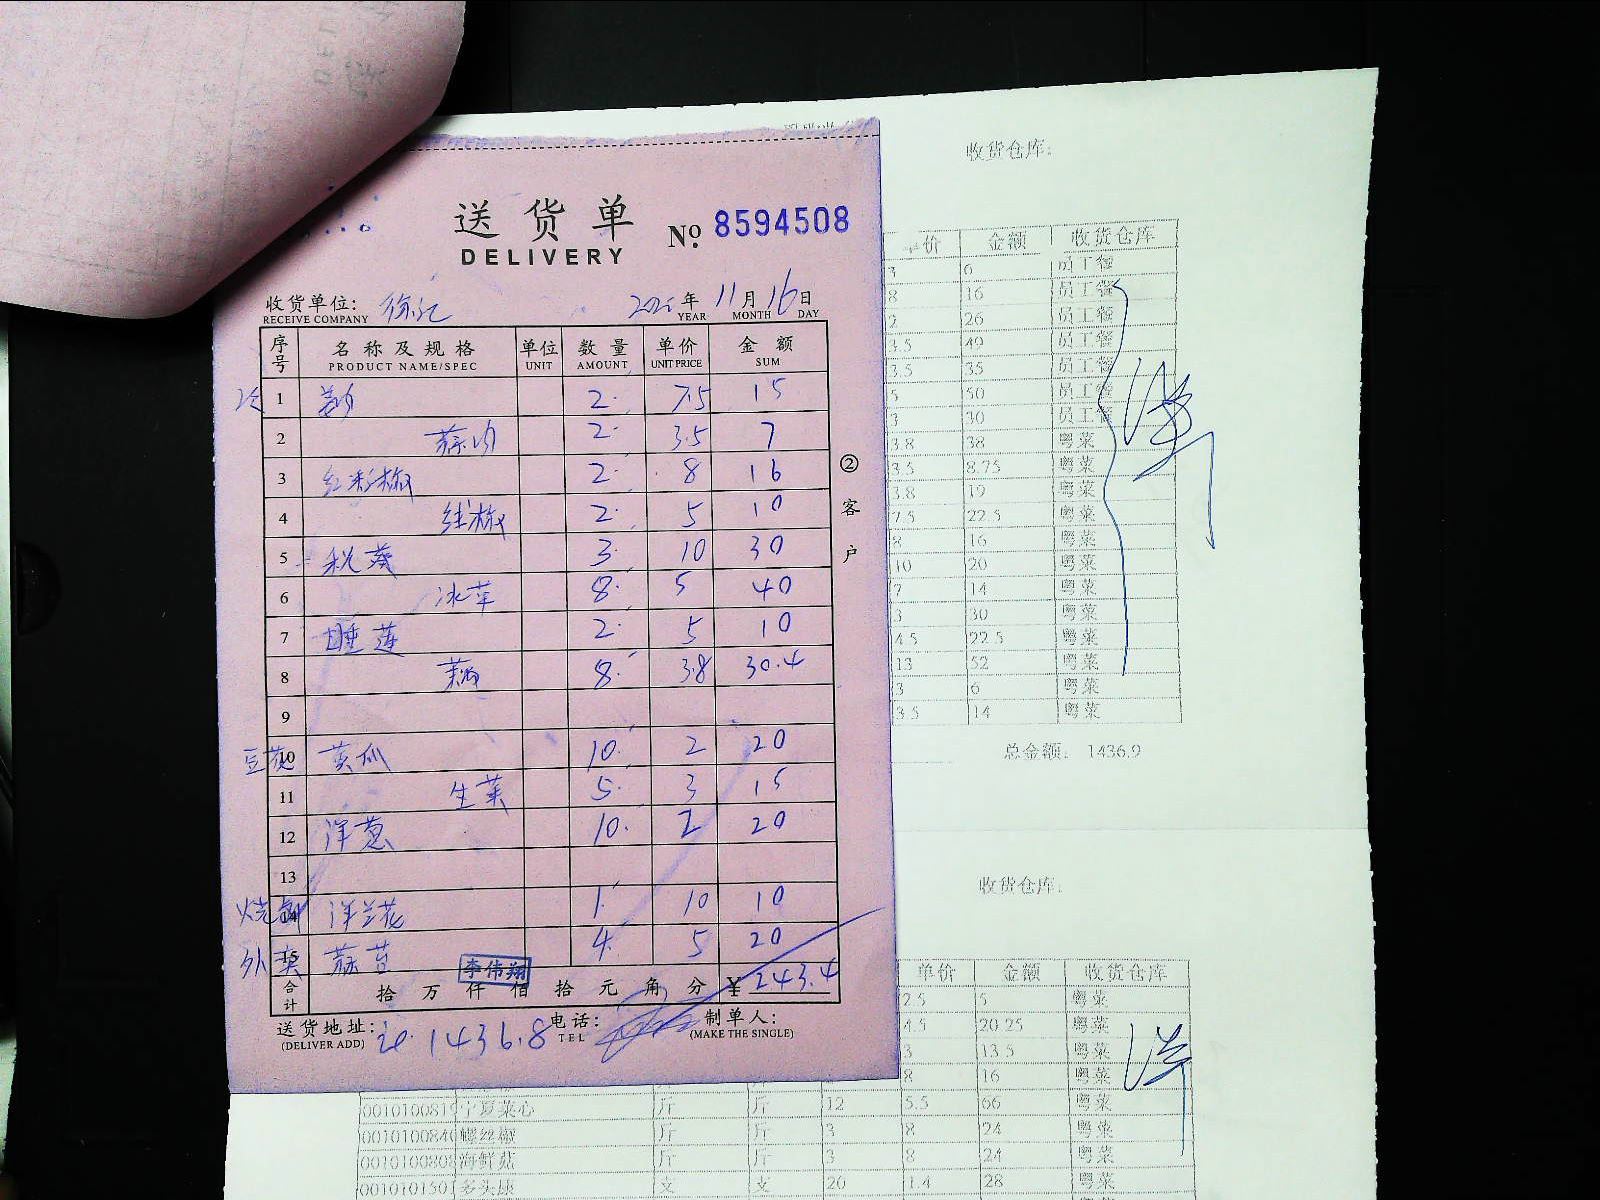 送货单 № 8594508
DELIVERY
收货单位: 徐汇 年 11月 16日
RECEIVE COMPANY YEAR MONTH DAY
序号 名称及规格 单位 数量 单价 金额
PRODUCT NAME/SPEC UNIT AMOUNT UNIT PRICE SUM
1 2 7.5 15
2 2 3.5 7
3 红彩椒 2 8 16
4 2 5 10
5 秋葵 3 10 30
6 冰草 8 5 40
7 睡莲 2 5 10
8 8 3.8 30.4
9
豆花 10 黄瓜 10 2 20
11 生菜 5 3 15
12 洋葱 10 2 20
13
14 洋兰花 1 10 10
外卖 15 4 5 20
李伟翔
合计 拾 万 仟 佰 拾 元 角 分 ¥ 243.4
送货地址: 1436.8 电话: 制单人:
(DELIVER ADD) TEL (MAKE THE SINGLE)
② 客户
收货仓库:
价 金额 收货仓库
6 员工餐
8 16 员工餐
2 26 员工餐
3.5 49 员工餐
3.5 35 员工餐
5 50 员工餐
3 30 员工餐
3.8 38 粤菜
3.5 8.75 粤菜
3.8 19 粤菜
7.5 22.5 粤菜
8 16 粤菜
10 20 粤菜
7 14 粤菜
3 30 粤菜
4.5 22.5 粤菜
13 52 粤菜
3 6 粤菜
3.5 14 粤菜
总金额: 1436.9
收货仓库:
单价 金额 收货仓库
2.5 5 粤菜
4.5 20.25 粤菜
3 13.5 粤菜
8 16 粤菜
宁夏菜心 斤 斤 12 5.5 66 粤菜
螺丝椒 斤 斤 3 8 24 粤菜
海鲜菇 斤 斤 3 8 24 粤菜
多头康 支 支 20 1.4 28 粤菜